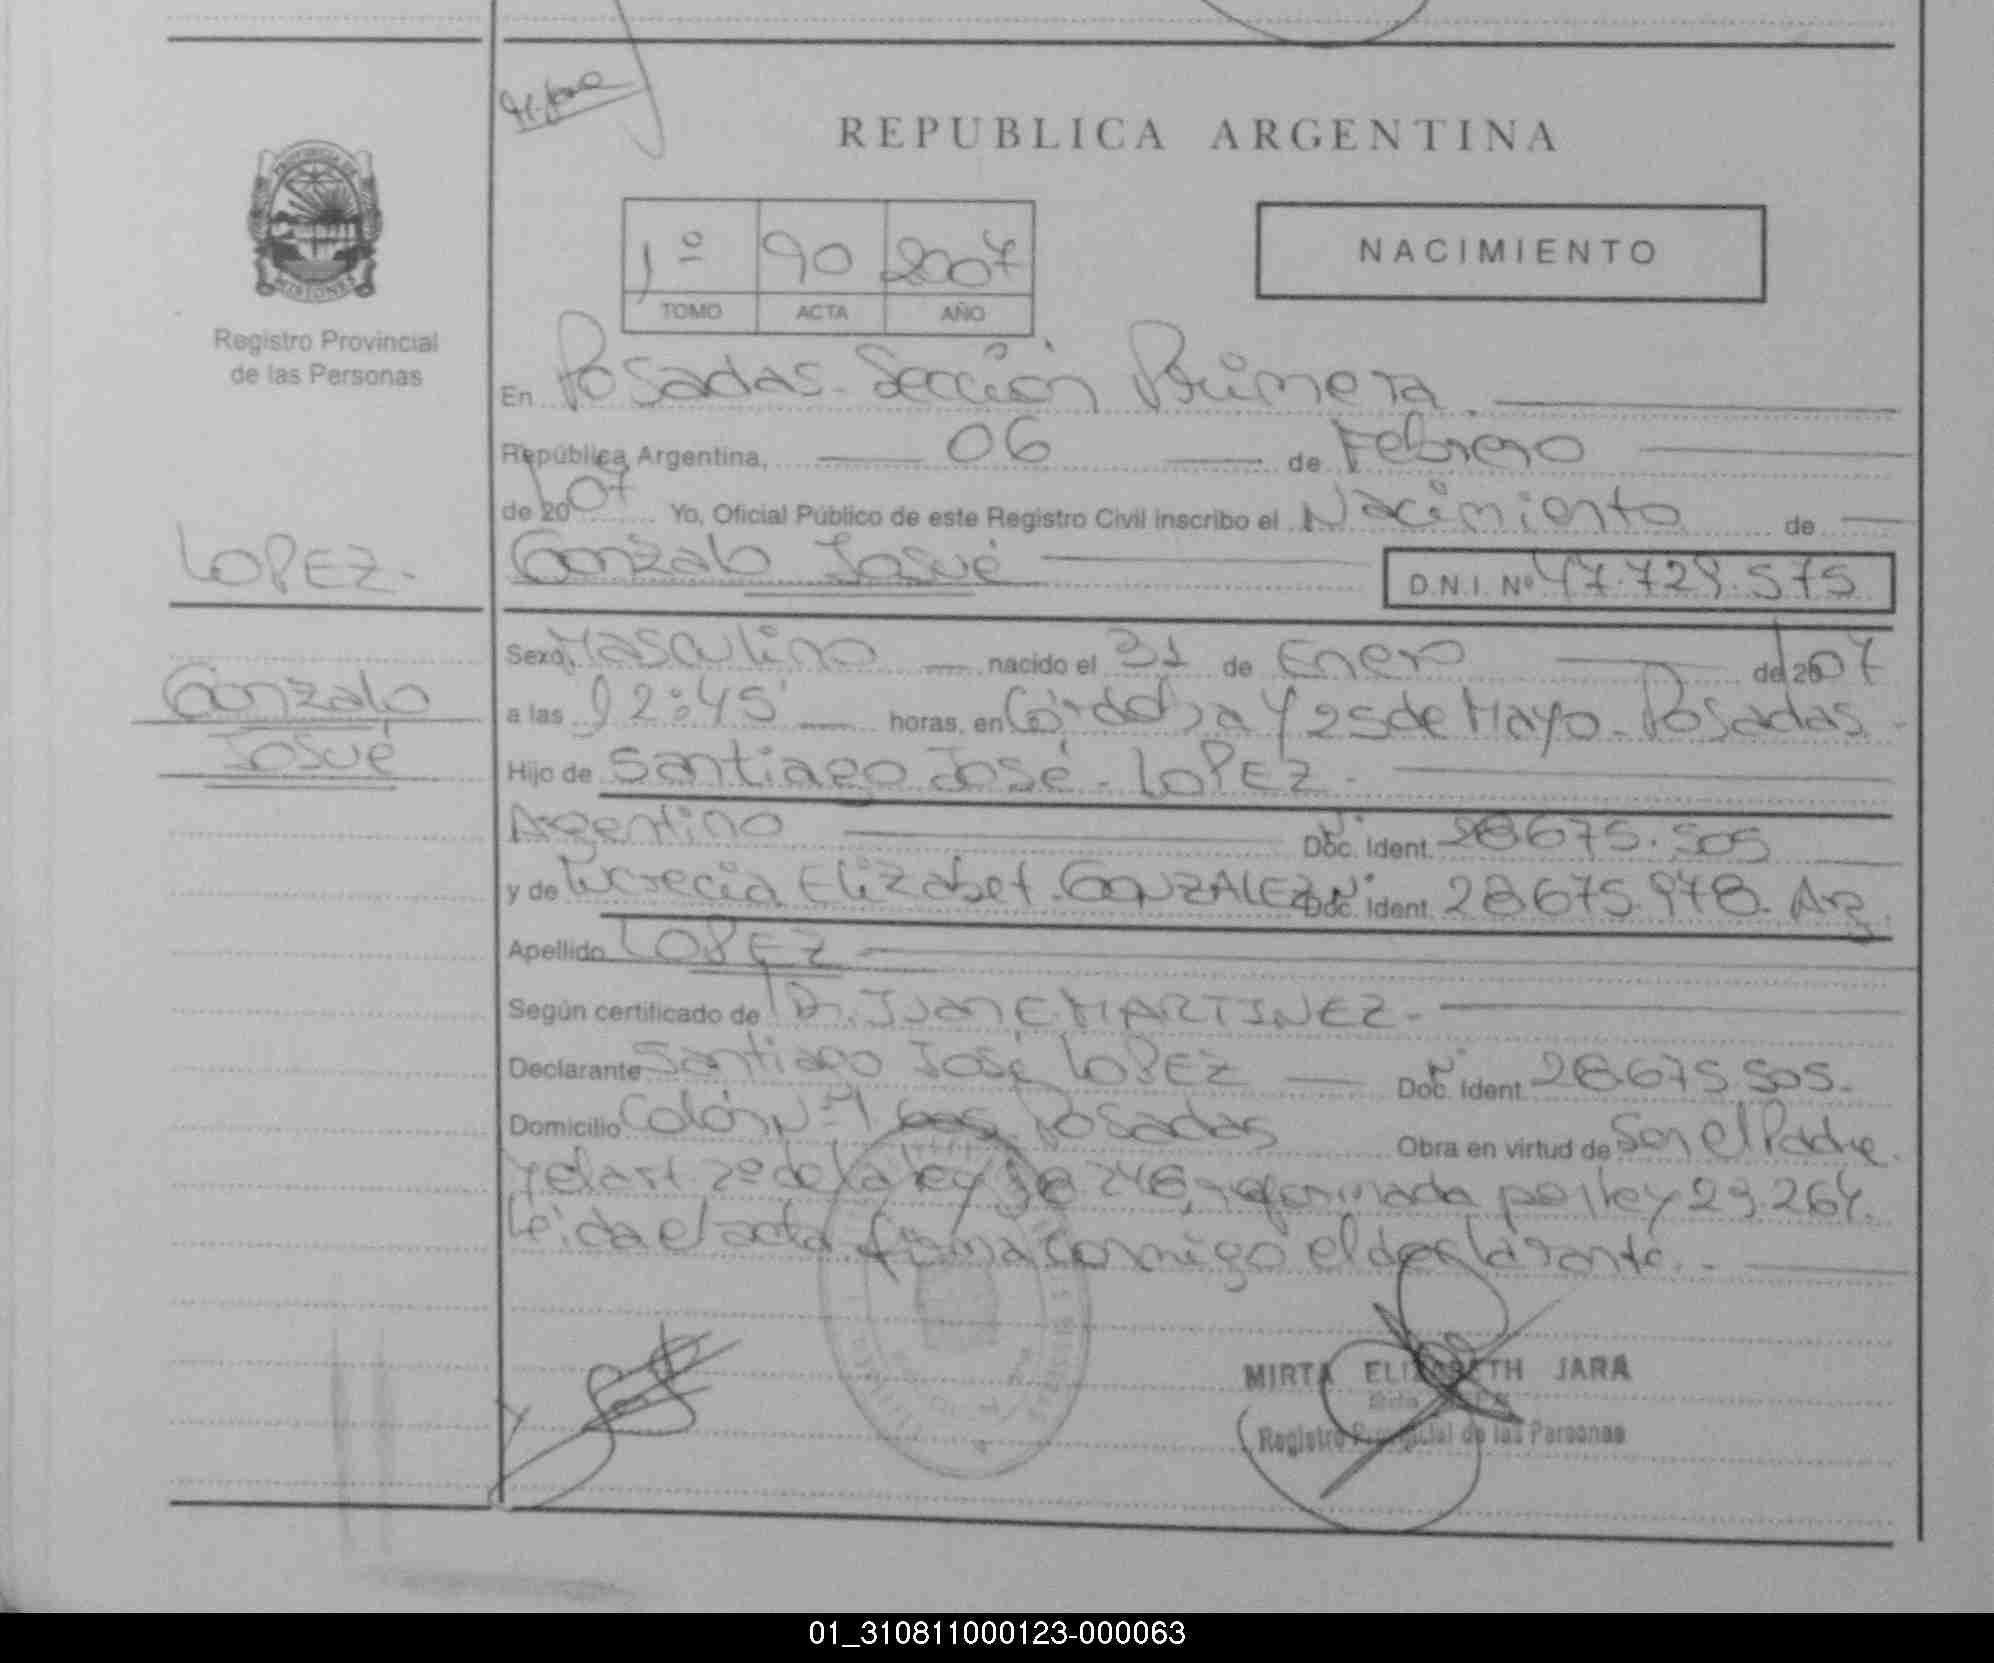 REPUBLICA ARGENTINA
PROVINCIA DE
MISIONES
Registro Provincial
de las Personas
NACIMIENTO
1º 90 2007
TOMO ACTA AÑO
En Posadas - Sección Primera.
República Argentina, 06 de Febrero
de 2007 Yo, Oficial Público de este Registro Civil inscribo el Nacimiento de
LOPEZ.
Gonzalo Josué D.N.I. Nº 47.729.575
Gonzalo
Josué
Sexo Masculino nacido el 31 de Enero de 2007
a las 12:45 horas, en Córdoba y 25 de Mayo - Posadas.
Hijo de Santiago José - LOPEZ -
Argentino Doc. Ident. 28675.505
y de Lucrecia Elizabet GONZALEZ Doc. Ident. 28675.978. Arg.
Apellido LOPEZ
Según certificado de Dr. JUAN E. MARTINEZ -
Declarante Santiago José LOPEZ Doc. Ident. 28675505.
Domicilio Colón Nº Posadas Obra en virtud de Ser el Padre
y el art 2º de la ley 18.248, reformada por ley 23.264.
Leida el acta firma conmigo el declarante. -
MIRTA ELIZABETH JARA
Registro Provincial de las Personas
01_310811000123-000063